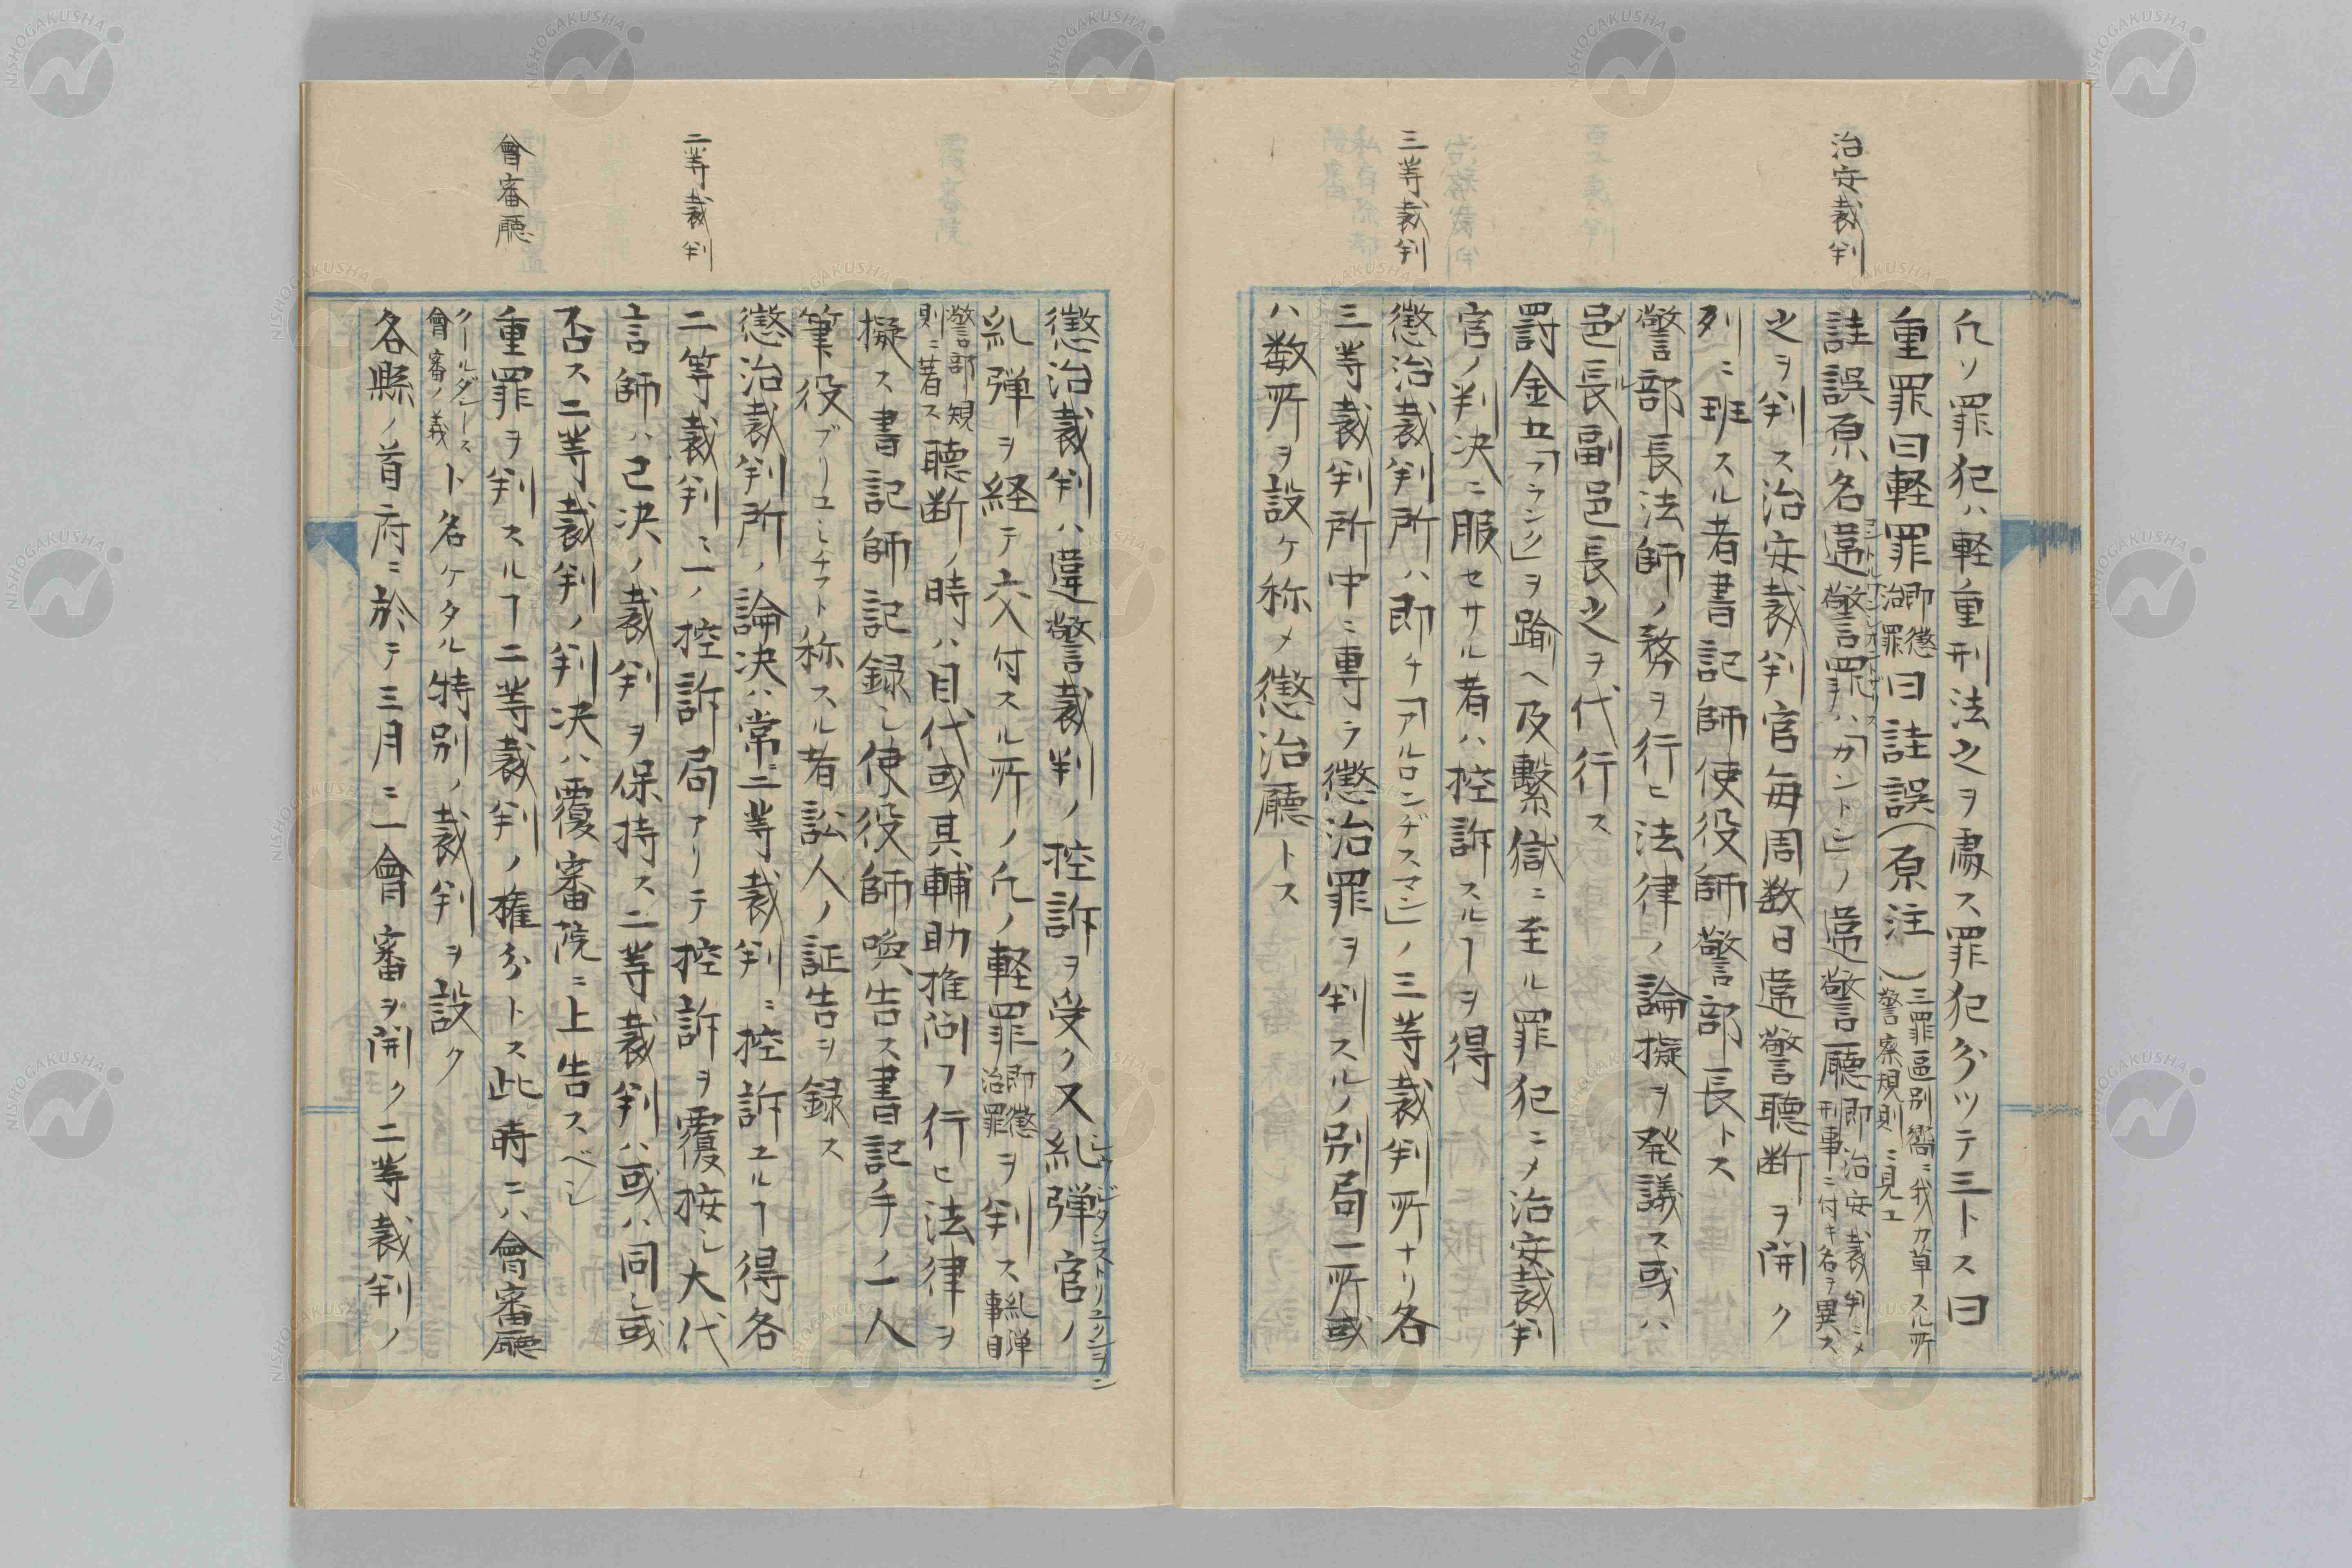 治安裁判
三等裁判
凢ソ罪犯ハ軽重刑法之ヲ處ス罪犯分ツテ三トス曰
重罪曰軽罪即懲治罪曰詿誤（原注）三罪區別嚮ニ我カ草スル所警察規則ニ見ユ
詿誤原名違警罪ハ「カントン」ノ違警廳即治安裁判ニメ刑事ニ付キ名ヲ異ス
之ヲ判ス治安裁判官毎周数日違警聴断ヲ開ク
列ニ班スル者書記師使役師警部長トス
警部長法師ノ務ヲ行ヒ法律ノ論擬ヲ発議ス或ハ
邑長副邑長之ヲ代行ス
罰金五「フランク」ヲ踰ヘ及繫獄ニ至ル罪犯ニメ治安裁判
官ノ判決ニ服セサル者ハ控訴スルヿヲ得
懲治裁判所ハ即チ「アルロンヂスマン」ノ三等裁判所ナリ各
三等裁判所中ニ専ラ懲治罪ヲ判スルノ別局一所或
ハ数所ヲ設ケ称メ懲治廳トス
二等裁判
會審廳
懲治裁判ハ違警裁判ノ控訴ヲ受ク又糺弾官ノ
糺弾ヲ経テ交付スル所ノ凢ノ軽罪即懲治罪ヲ判ス糺弾事目
警部規則ニ著ス聴断ノ時ハ目代或其輔助推問フ行ヒ法律ヲ
擬ス書記師記録シ使役師喚告ス書記手ノ一人
筆役プリユミチフト称スル者訟人ノ証告ヲ録ス
懲治裁判所ノ論決ハ常ニ二等裁判ニ控訴ユルヿ得各
二等裁判ニ一ノ控訴局アリテ控訴ヲ覆按シ大代
言師ハ已決ノ裁判ヲ保持ス二等裁判ハ或ハ同シ或
否ス二等裁判ノ判決ハ覆審院ニ上告スベシ
重罪ヲ判スルヿ二等裁判ノ権分トス此時ニハ會審廳
クールダシース會審ノ義ト名ケタル特別ノ裁判ヲ設ク
各縣ノ首府ニ於テ三月ニ一會審ヲ開ク二等裁判ノ
NISHOGAKUSHA